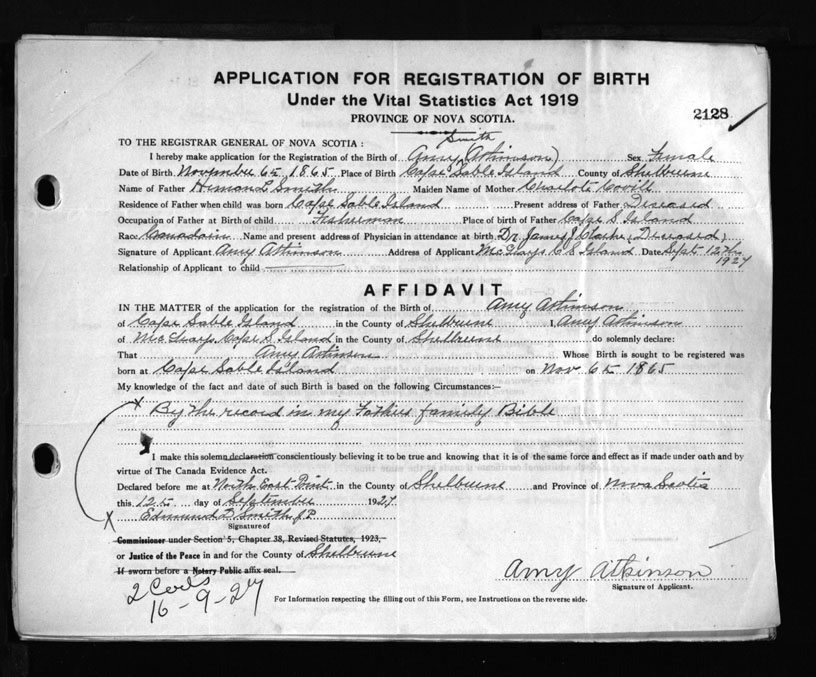 APPLICATION FOR REGISTRATION OF BIRTH
Under the Vital Statistics Act 1919
PROVINCE OF NOVA SCOTIA.
2128
TO THE REGISTRAR GENERAL OF NOVA SCOTIA:
Smith
I hereby make application for the Registration of the Birth of Amy (Atkinson) Sex Female
Date of Birth November 6th, 1865 Place of Birth Cape Sable Island County of Shelburne
Name of Father Himan L Smith Maiden Name of Mother Charlote Covill
Residence of Father when child was born Cape Sable Island Present address of Father Diseased
Occupation of Father at Birth of child Fisherman Place of birth of Father Cape S Island
Race Canadain Name and present address of Physician in attendance at birth Dr James J Clarke (Deceased)
Signature of Applicant Amy Atkinson Address of Applicant McGrays C S Island Date Sept 12th
1927
Relationship of Applicant to child
AFFIDAVIT
IN THE MATTER of the application for the registration of the Birth of Amy Atkinson
of Cape Sable Island in the County of Shelburne I, Amy Atkinson
of McGrays Cape S Island in the County of Shelburne do solemnly declare:
That Amy Atkinson Whose Birth is sought to be registered was
born at Cape Sable Island on Nov 6th 1865
My knowledge of the fact and date of such Birth is based on the following Circumstances:—
x By the record in my Fathers family Bible
I make this solemn declaration conscientiously believing it to be true and knowing that it is of the same force and effect as if made under oath and by
virtue of The Canada Evidence Act.
Declared before me at North East Point in the County of Shelburne and Province of Nova Scotia
this 12th day of September 1927
x Edmund D Smith J P
Signature of
Commissioner under Section 5, Chapter 38, Revised Statutes, 1923,
or Justice of the Peace in and for the County of Shelburne
If sworn before a Notary Public affix seal.
Amy Atkinson
Signature of Applicant.
16-9-27
For Information respecting the filling out of this Form, see Instructions on the reverse side.